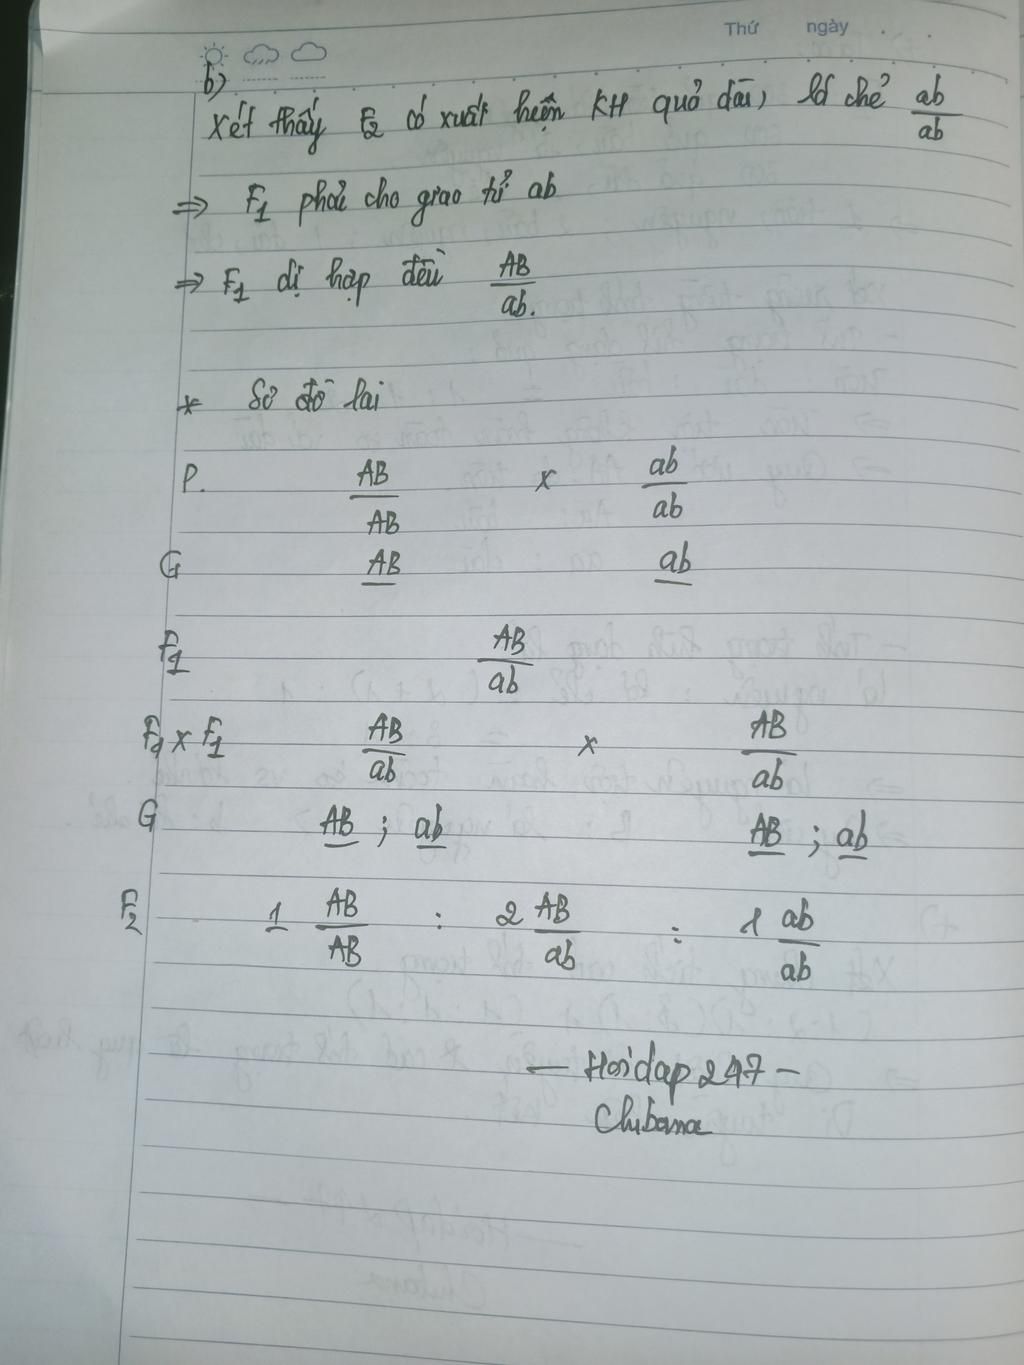 Thứ ngày
b)
Xét thấy F2 có xuất hiện KH quả dài, lá chẻ ab/ab
=> F1 phải cho giao tử ab
=> F1 dị hợp đều AB/ab.
* Sơ đồ lai
P. AB/AB x ab/ab
G AB ab
F1 AB/ab
F1 x F1 AB/ab x AB/ab
G AB ; ab AB ; ab
F2 1 AB/AB : 2 AB/ab : 1 ab/ab
— Hoidap 247 —
Chibana